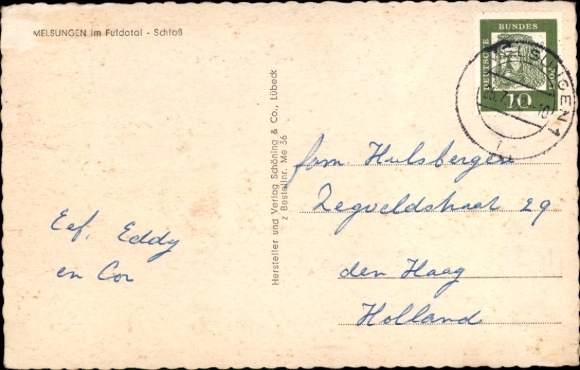 MELSUNGEN im Fuldatal - Schloß
Eef, Eddy
en Cor
Hersteller und Verlag Schöning & Co., Lübeck
z Bestellnr. Me 36
DEUTSCHE
BUNDES
10
MELSUNGEN 1
fam. Hulsbergen
Zegveldstraat 29
den Haag
Holland